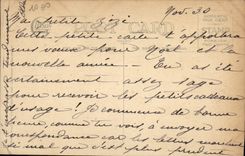 Nov. 30
Ma petite Zizi
Cette petite carte t'apportera
mes vœux pour Noël et la
nouvelle année — Tu as été
certainement assez sage
pour recevoir les petits cadeaux
d'usage! Je commence de bonne
heure, comme tu vois, à envoyer ma
correspondance car les lettres marchent
si mal que c'est plus prudent